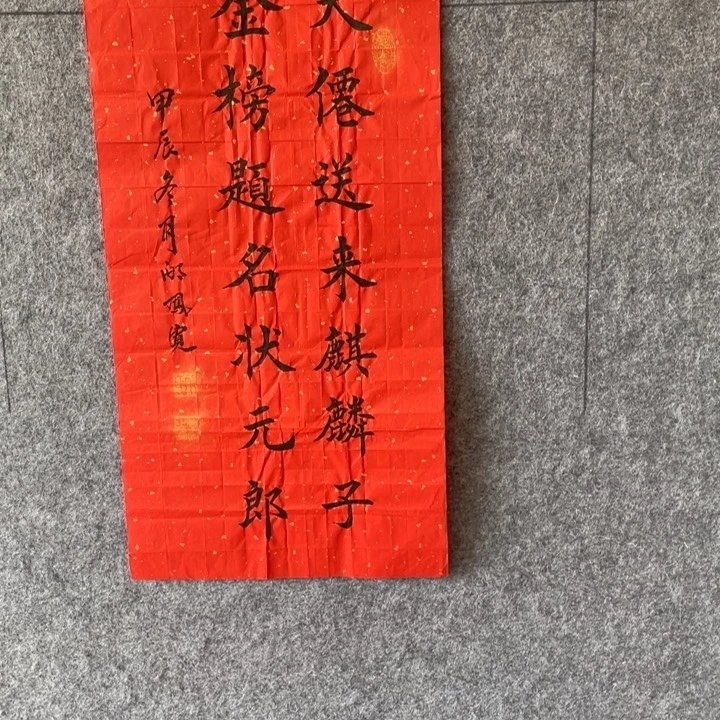 天僊送来麒麟子
金榜題名状元郎
甲辰冬月